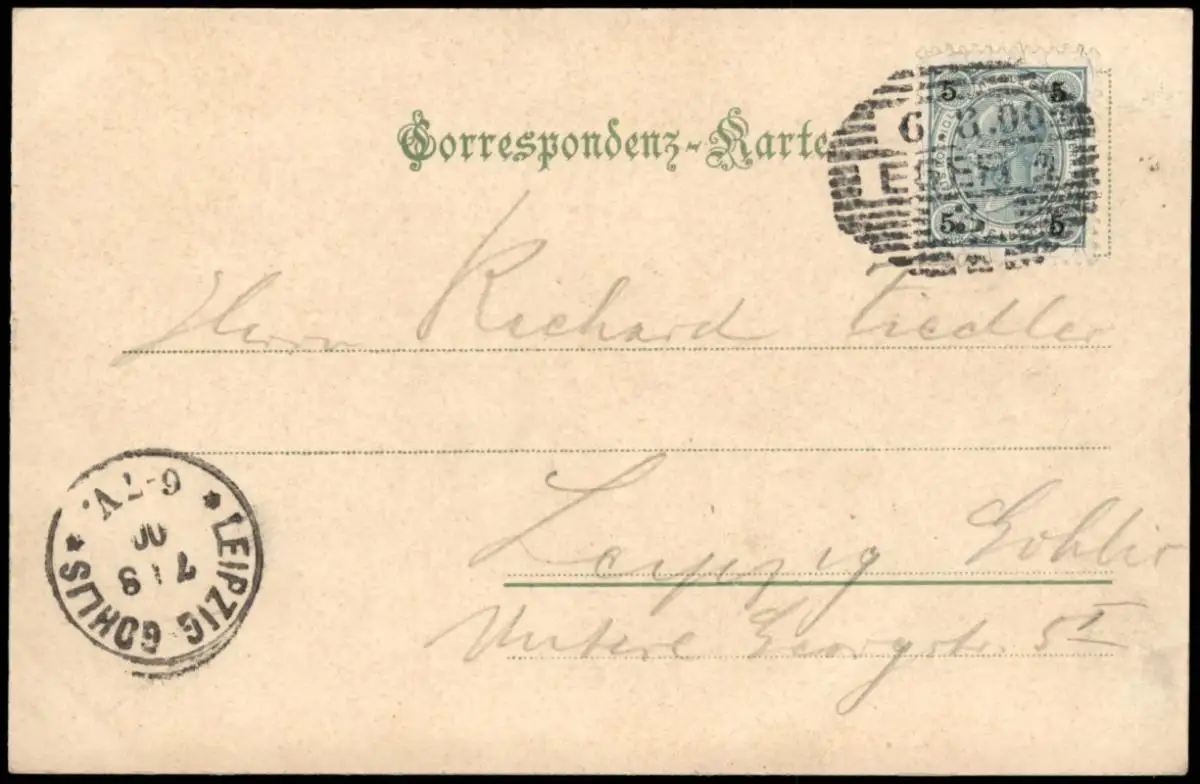 Correspondenz-Karte
5 5
6 8.00
5 5
Herrn Richard Fiedler
Leipzig Gohlis
Untere Georgstr. 5 I
* LEIPZIG GOHLIS *
7 8
00
6-7V.